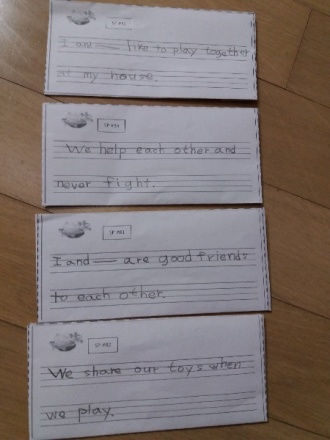 I and — like to play together
at my house.
We help each other and
never fight.
I and — are good friends
to each other.
We share our toys when
we play.